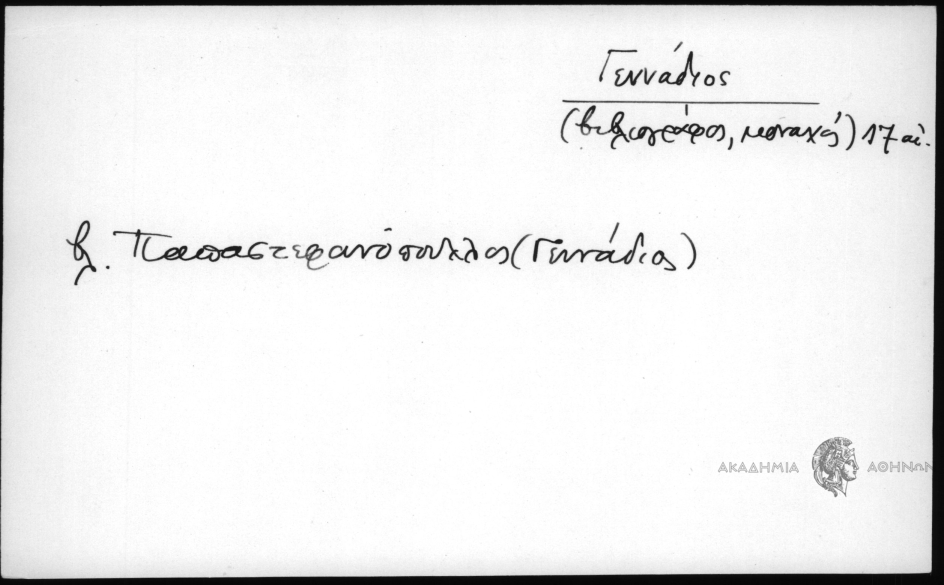 Γεννάδιος
(βιβλιογράφος, μοναχός) 17 αἰ.
βλ. Παπαστεφανόπουλλος (Γεννάδιος)
ΑΚΑΔΗΜΙΑ ΑΘΗΝΩΝ